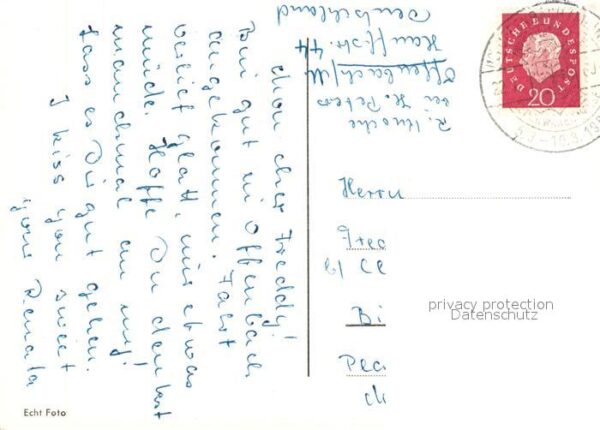 Mon cher Freddy!
Bin gut in Offenbach
angekommen. Fahrt
verlief glatt, nur etwas
müde. Hoffe Du denkst
manchmal an mich!
Lass es Dir gut gehen.
I kiss you sweet
your Renata
R. Knoche
bei H. Peters
Offenbach/M
Hauffstr. 44
Deutschland
DEUTSCHE BUNDESPOST
20
Herrn
Fred
b/ Cl
Bi
Pea
ch
privacy protection
Datenschutz
Echt Foto